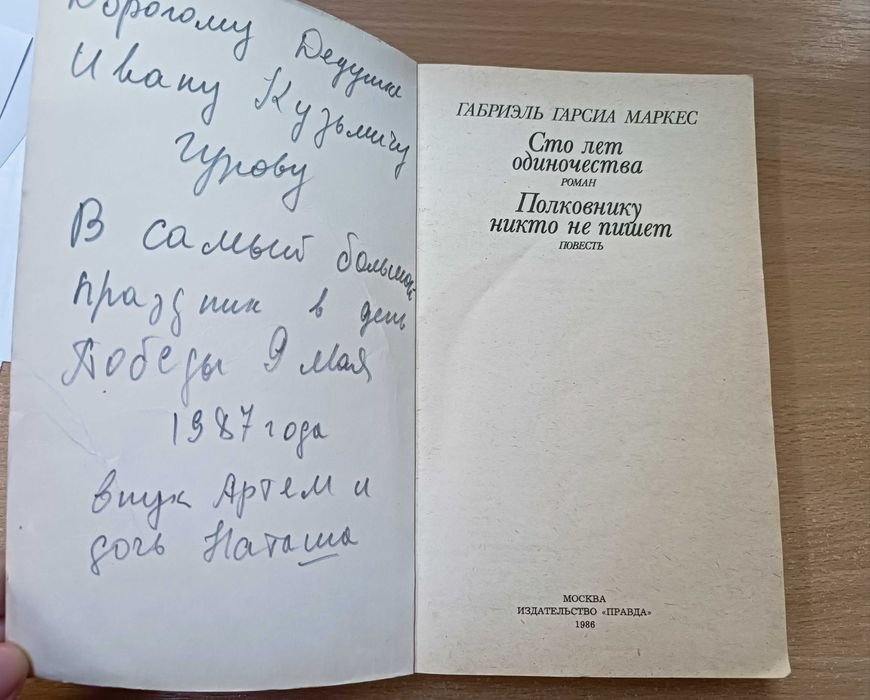 Дорогому Дедушке
Ивану Кузьмичу
Гурову
В самый большой
праздник в день
Победы 9 мая
1987 года
внук Артем и
дочь Наташа
ГАБРИЭЛЬ ГАРСИА МАРКЕС
Сто лет
одиночества
РОМАН
Полковнику
никто не пишет
ПОВЕСТЬ
МОСКВА
ИЗДАТЕЛЬСТВО «ПРАВДА»
1986